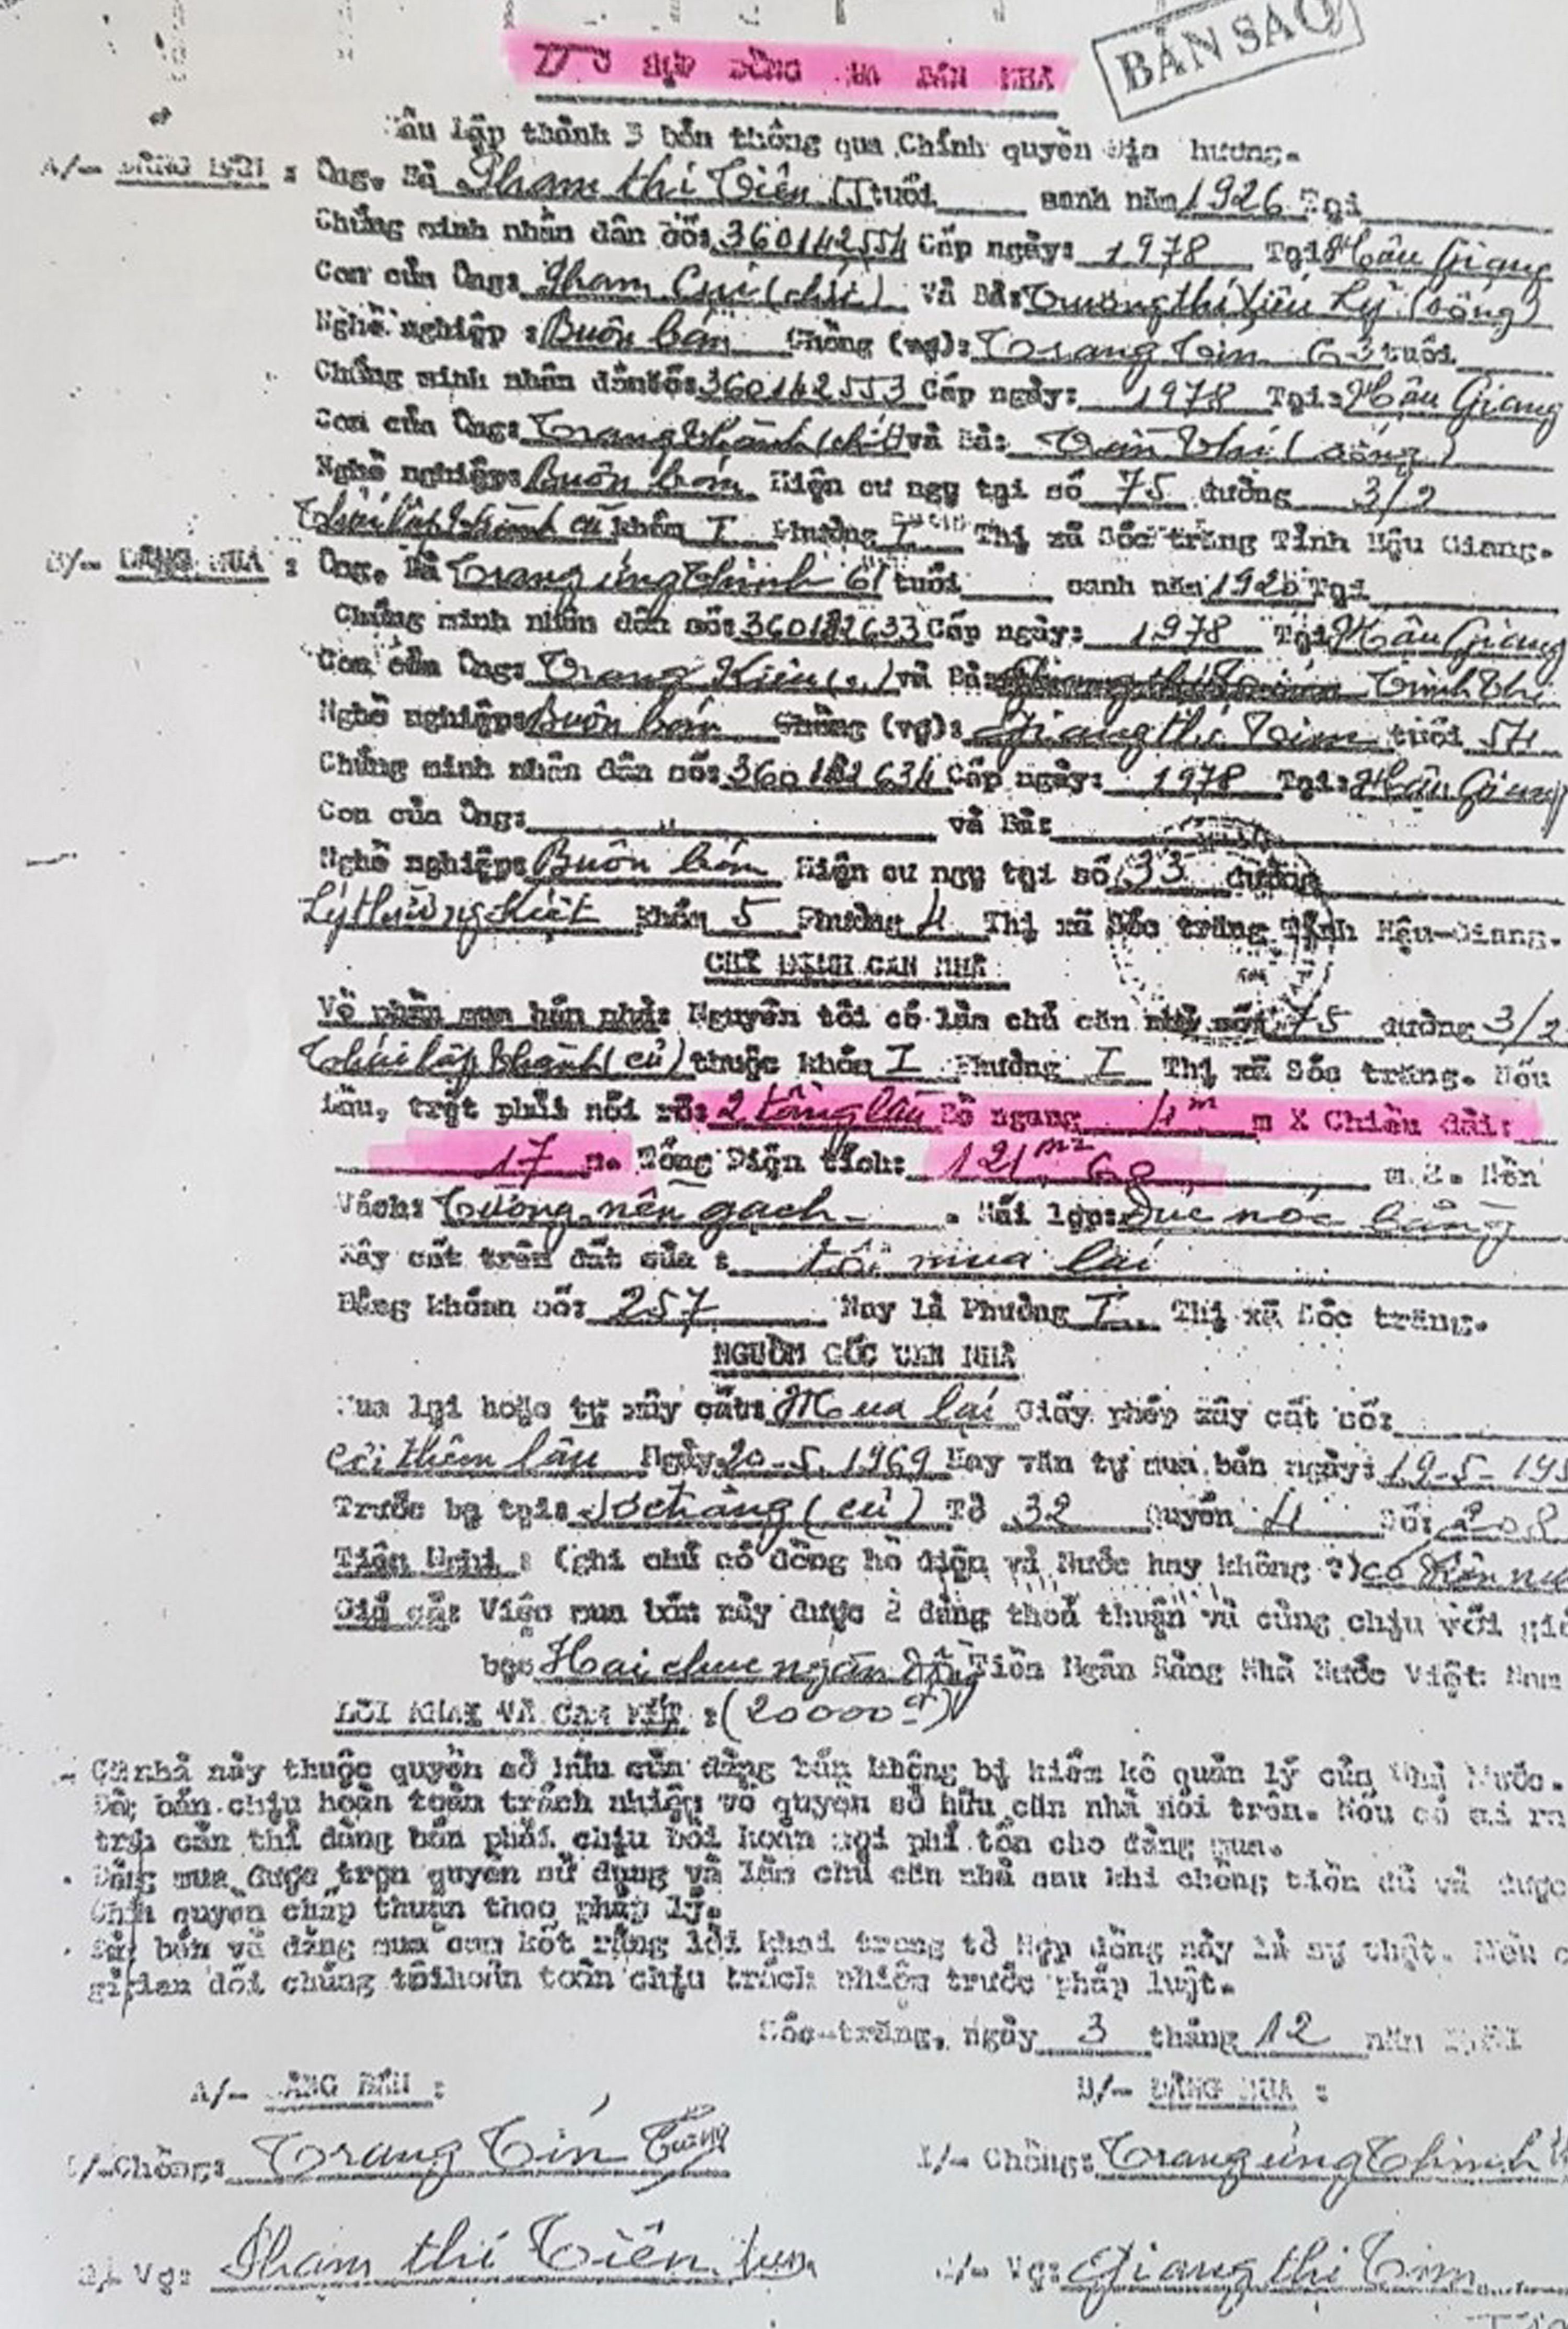 BẢN SAO
HỢP ĐỒNG MUA BÁN NHÀ
Mẫu lập thành 3 bổn thông qua Chính quyền Địa phương.
A/- ĐẰNG BÁN : Ông, Bà Phạm thị Tiên 55 tuổi sanh năm 1926 Tại
Chứng minh nhân dân số: 360142554 Cấp ngày: 1978 Tại Hậu Giang
Con của Ông: Phạm Cui (chết) và Bà: Trương thị Liêu Lý (sống)
Nghề nghiệp : Buôn bán Chồng (vợ): Trang Tín 63 tuổi
Chứng minh nhân dân số: 360142553 Cấp ngày: 1978 Tại: Hậu Giang
Con của Ông: Trang Thành (chết) và Bà: Trần Thị (sống)
Nghề nghiệp: Buôn bán Hiện cư ngụ tại số 75 đường 3/2
Thái lập Thành cũ khóm I Phường I Thị xã Sóc trăng Tỉnh Hậu Giang.
B/- ĐẰNG MUA : Ông, Bà Trang ứng Thinh 61 tuổi sanh năm 1920 Tại
Chứng minh nhân dân số: 360182633 Cấp ngày: 1978 Tại Hậu Giang
Con của Ông: Trang Kiêu và Bà: Trinh Thị
Nghề nghiệp: Buôn bán Chồng (vợ): Giang thị Kim tuổi 54
Chứng minh nhân dân số: 360182634 Cấp ngày: 1978 Tại: Hậu Giang
Con của Ông: " và Bà:
Nghề nghiệp: Buôn bán Hiện cư ngụ tại số 33 đường
Lý thường Kiệt khóm 5 Phường 4 Thị xã Sóc trăng Tỉnh Hậu-Giang.
CHỈ ĐỊNH CĂN NHÀ
Về phần mua bán nhà: Nguyên tôi có làm chủ căn nhà số: 75 đường 3/2
Thái lập Thành (cũ) thuộc khóm I Phường I Thị xã Sóc trăng. Nếu
lầu, trệt phải nói rõ: 2 tầng lầu Bề ngang 4m m X Chiều dài:
17 m. Tổng Diện tích: 121m2 68 m2. Nền
Vách: Tường, nền gạch. Mái lợp: Đúc nóc bằng
Xây cất trên đất của : tôi mua lại
Bằng khoán số: 257 Nay là Phường I Thị xã Sóc trăng.
NGUỒN GỐC CĂN NHÀ
Mua lại hoặc tự xây cất: Mua lại Giấy phép xây cất số:
Cơi thêm lầu Ngày 20-5-1969 Hay văn tự mua bán ngày: 19-5-195
Trước bạ tại: Sóctrăng (cũ) Tờ 32 Quyển 4 Số: 208
Tiện Nghi : (ghi chú có đồng hồ điện và Nước hay không ?) có điện nư
Giá cả: Việc mua bán này được 2 đằng thoả thuận và cùng chịu với giá
bạc Hai chục ngàn đồng Tiền Ngân Hàng Nhà Nước Việt Nam
LỜI KHAI VÀ CAM KẾT : (20000đ)
- Căn nhà này thuộc quyền sở hữu của đằng bán không bị kiểm kê quản lý của Nhà Nước.
Đằng bán chịu hoàn toàn trách nhiệm về quyền sở hữu căn nhà nói trên. Nếu có ai ra
tranh cản thì đằng bán phải chịu bồi hoàn mọi phí tổn cho đằng mua.
- Đằng mua được trọn quyền sử dụng và làm chủ căn nhà sau khi chồng tiền đủ và được
Chính quyền chấp thuận theo pháp lý.
- Đằng bán và đằng mua cam kết rằng lời khai trong tờ Hợp đồng này là sự thật. Nếu c
gì gian dối chúng tôi hoàn toàn chịu trách nhiệm trước pháp luật.
Sóc-trăng, ngày 3 tháng 12 năm 1981
A/- ĐẰNG BÁN : B/- ĐẰNG MUA :
1/- Chồng: Trang Tín 1/- Chồng: Trang ứng Thinh
2/- Vợ: Phạm thị Tiên 2/- Vợ: Giang thị Kim